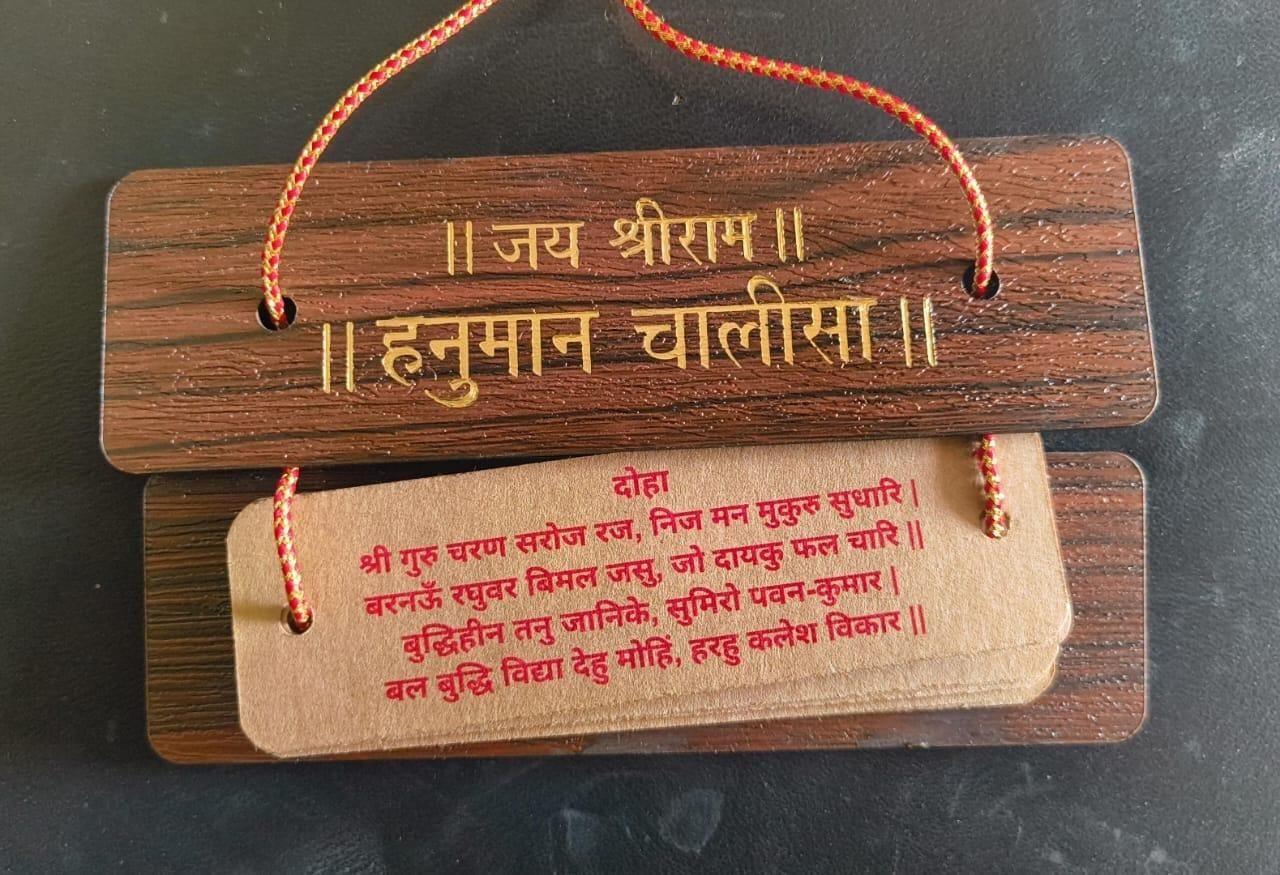 || जय श्रीराम ||
|| हनुमान चालीसा ||
दोहा
श्री गुरु चरण सरोज रज, निज मन मुकुरु सुधारि |
बरनऊँ रघुवर बिमल जसु, जो दायकु फल चारि ||
बुद्धिहीन तनु जानिके, सुमिरो पवन-कुमार |
बल बुद्धि विद्या देहु मोहिं, हरहु कलेश विकार ||